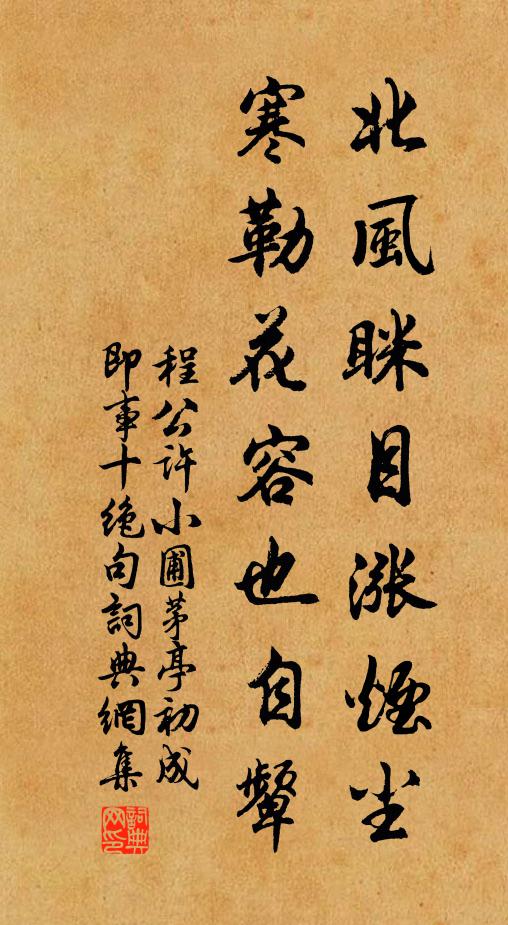 北風眯目漲煙尘
寒勒花容也自颦
程公許小圃茅亭初成
即事十絶句詞典網集
詞典网印